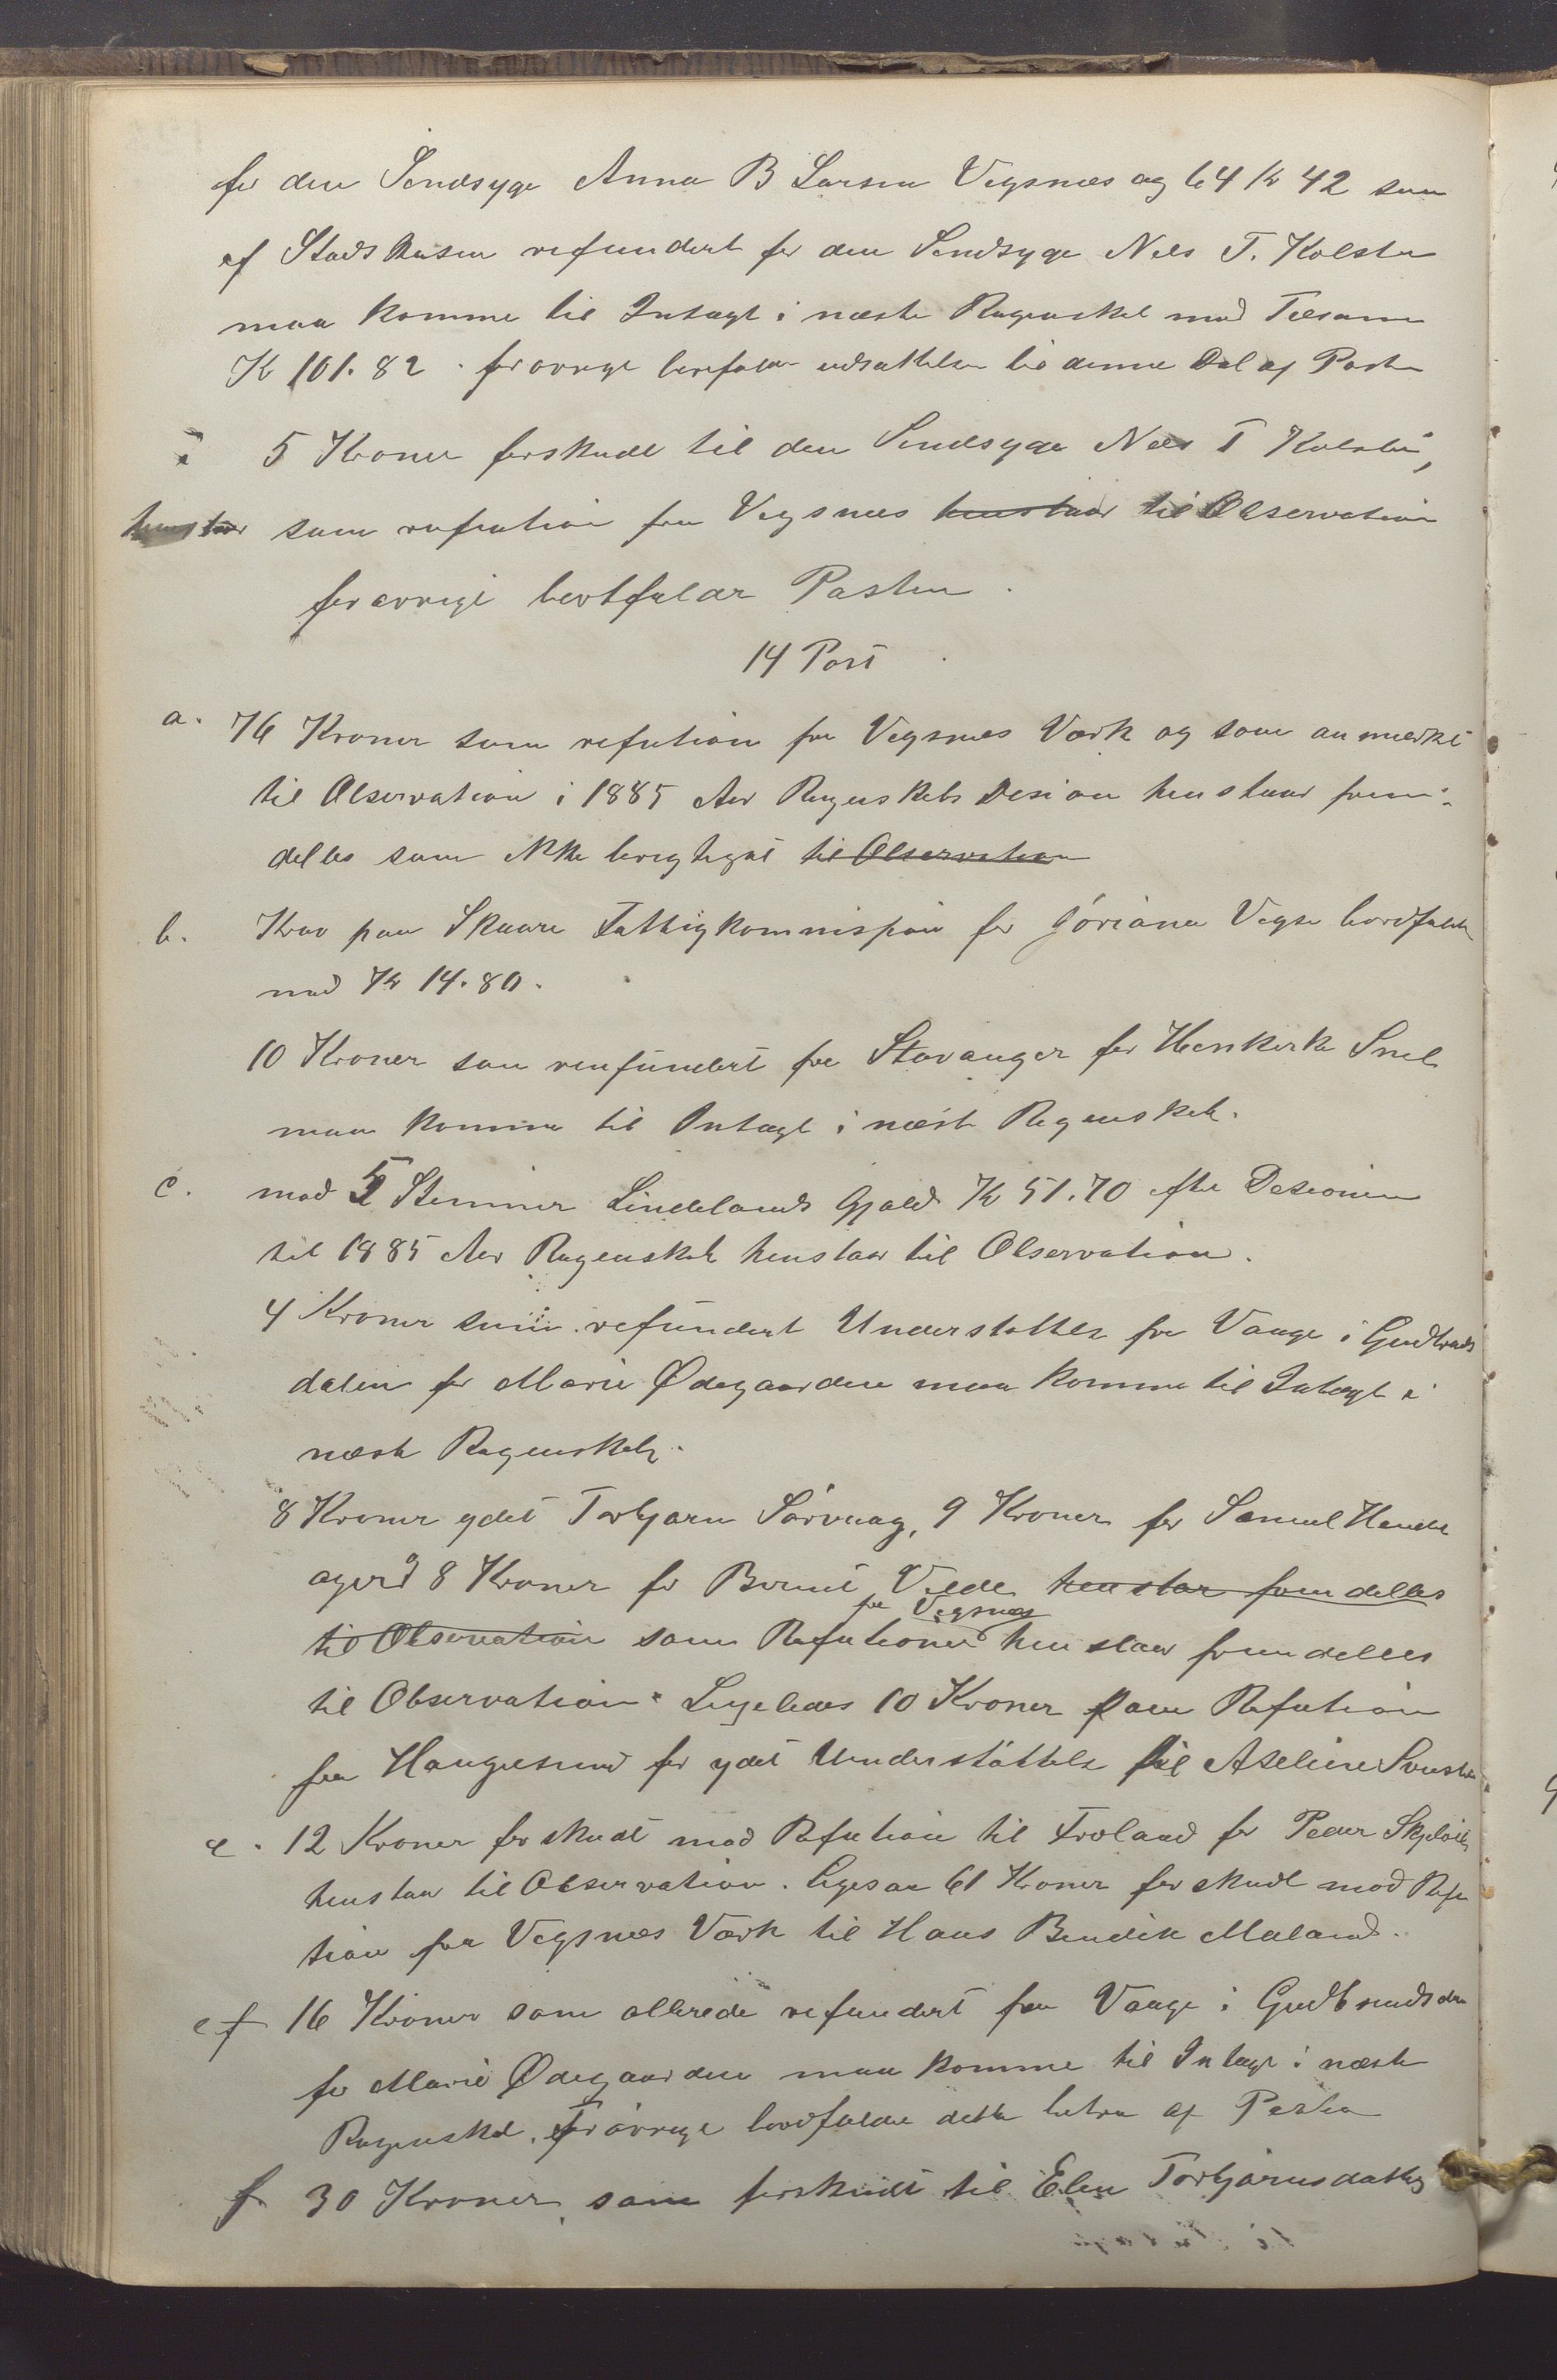 for den Sindsyge Anna B Larsen Vigsnæs og 64 Kr 42 som
af Stadskasen refundert for den Sindsyge Nels T. Kolstø
maa komme til Intægt i næste Regnskab med Tilsamen
Kr 101.82. forøvrigt bortfalder udsættelsen til denne Del af Posten
i 5 Kroner forskudt til den Sindsyge Nels T Kolstø,
henstaar som refution fra Vigsnæs henstaar til Observation
forøvrigt bortfalder Posten.
14 Post
a. 76 Kroner som refution fra Vigsnæs Værk og som anmerkt
til Observation i 1885 Aar Regnskabs Desion henstaar frem-
delles som ikke berigtiget til Observation
b. Krav paa Skaare Fattigkommission for Jøriana Vigse bordfalder
med Kr 14.80.
10 Kroner som renfundert fra Stavanger for Henkerke Snel
maa komme til Intægt i næste Regnskab.
c. mod 5 Stemmer Lindelands Gjæld Kr 51.70 efter Desionen
til 1885 Aar Regnskab henstaar til Observation.
4 Kroner som refundert Understøttelse fra Vange i Gudbrands
dalen for Marie Ødegaarden maa komme til Intægt i
næste Regnskab.
8 Kroner ydet Torbjørn Sørvaag, 9 Kroner for Samuel Hende
ager og 8 Kroner for Bernt Velde henstar fremdelles
fra Vigsnæs
til Observation som Refutioner henstaar fremdelles
til Observation. Ligeledes 10 Kroner som Refution
fra Haugesund for ydet Understøttelse til Aseline
e. 12 Kroner forskudt mod Refution til Froland for Peder
henstaar til Observation. ligesaa 61 Kroner forskudt mod Refu
tion fra Vigsnæs Værk til Hans Bendik Mæland.
ef 16 Kroner som allerede refundert fra Vange i Gudbrandsdn
for Marie Ødegaarden maa komme til Intægt i næste
Regnskab. Forøvrigt bordfalder dette litra af Posten
f 30 Kroner som forskudt til Elen Torbjørnsdatter